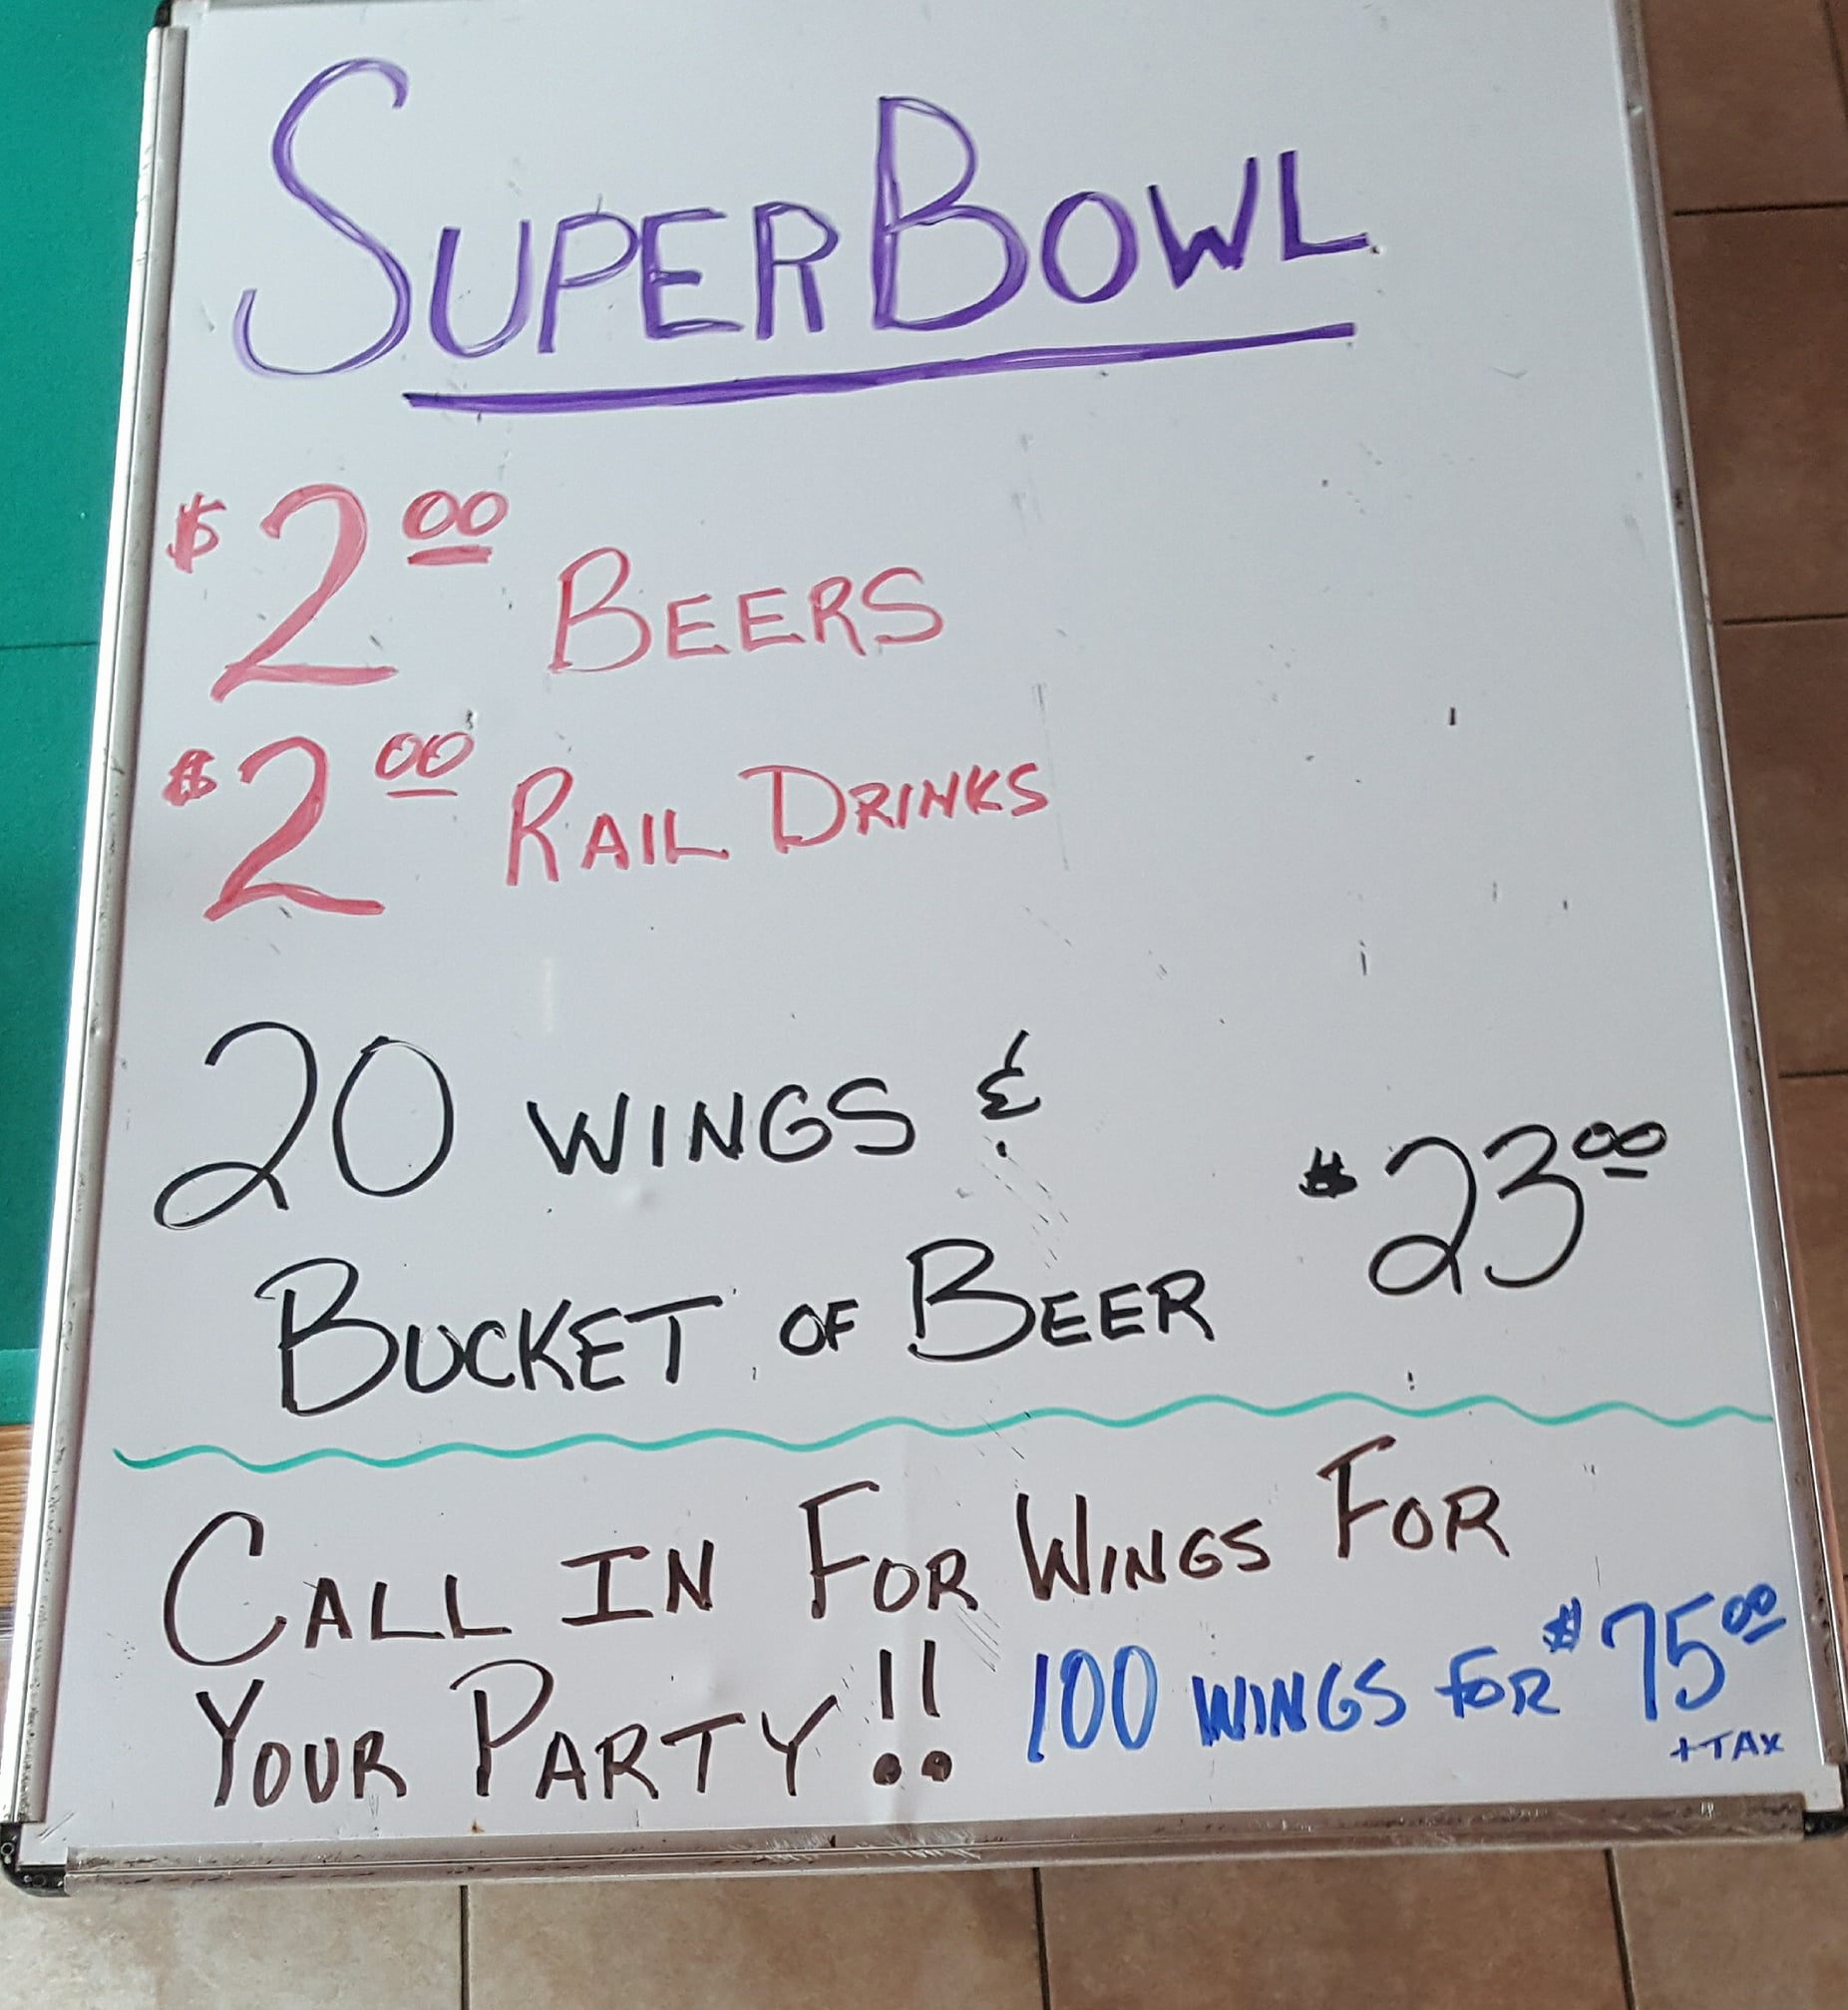 SUPER BOWL
$2.00 BEERS
$2.00 RAIL DRINKS
20 WINGS &
BUCKET OF BEER $23.00
CALL IN FOR WINGS FOR
YOUR PARTY!! 100 WINGS FOR $75.00
+TAX